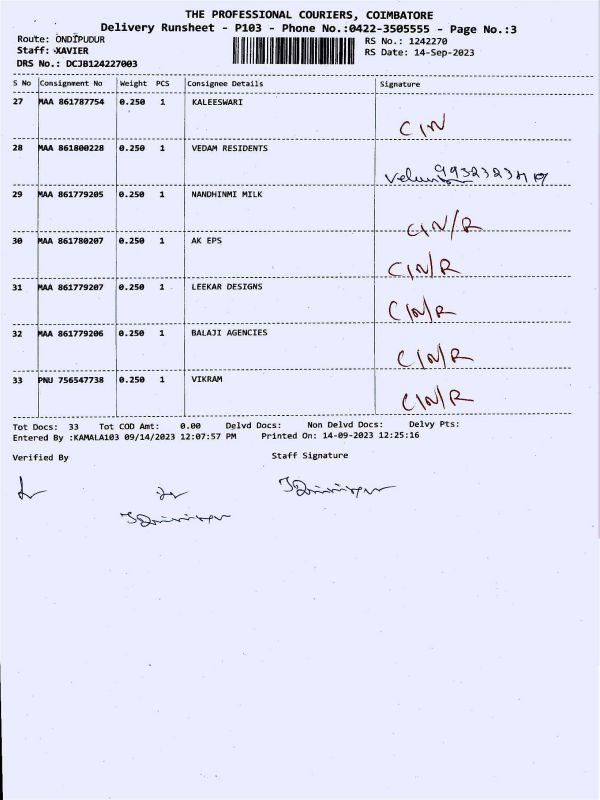 THE PROFESSIONAL COURIERS, COIMBATORE
Delivery Runsheet - P103 - Phone No.:0422-3505555 - Page No.:3
Route: ONDIPUDUR RS No.: 1242270
Staff: XAVIER RS Date: 14-Sep-2023
DRS No.: DCJB124227003
S No Consignment No Weight PCS Consignee Details Signature
27 MAA 861787754 0.250 1 KALEESWARI
CIN
28 MAA 861800228 0.250 1 VEDAM RESIDENTS
29 MAA 861779205 0.250 1 NANDHINMI MILK
CIN/R
30 MAA 861780207 0.250 1 AK EPS
CIN/R
31 MAA 861779207 0.250 1 LEEKAR DESIGNS
CIN/R
32 MAA 861779206 0.250 1 BALAJI AGENCIES
CIN/R
33 PNU 756547738 0.250 1 VIKRAM
CIN/R
Tot Docs: 33 Tot COD Amt: 0.00 Delvd Docs: Non Delvd Docs: Delvy Pts:
Entered By :KAMALA103 09/14/2023 12:07:57 PM Printed On: 14-09-2023 12:25:16
Verified By Staff Signature